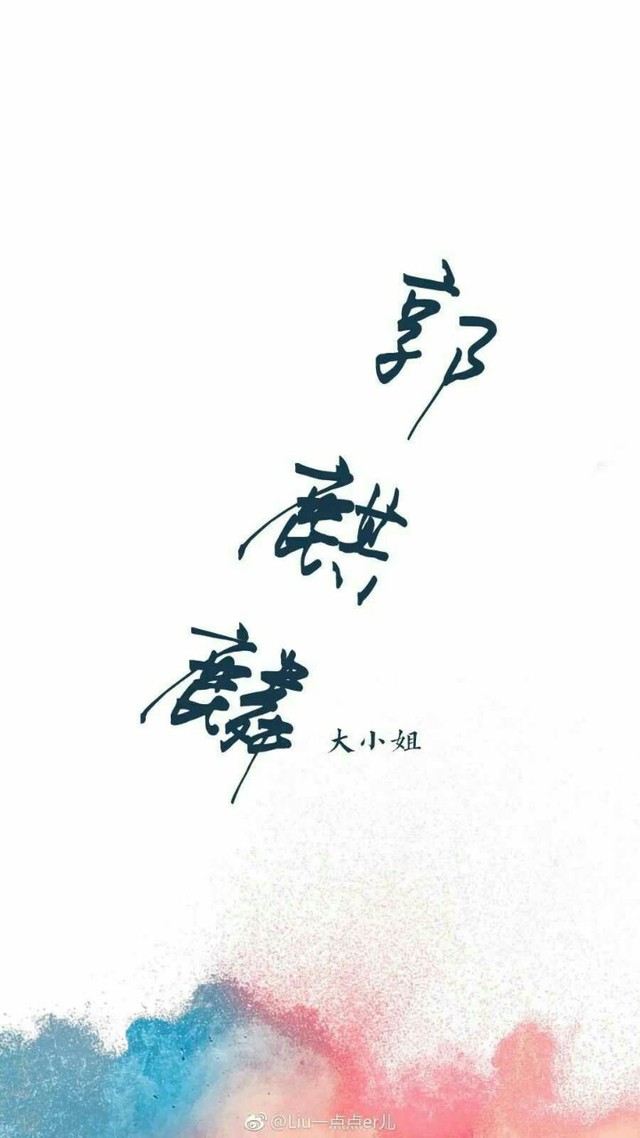 郭麒麟
大小姐
@Liu一点点er儿